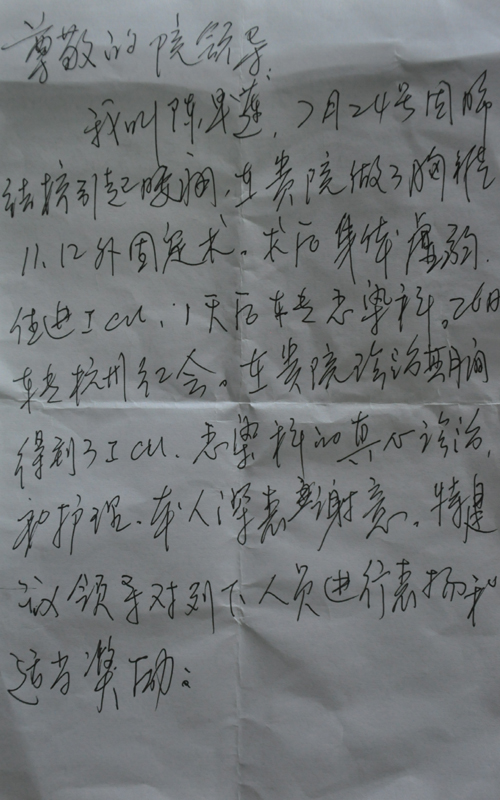 尊敬的院领导:
我叫陈早莲,7月24号因肺
结核引起腰痛,在贵院做了胸椎
11、12外固定术。术后身体虚弱.
住进ICU、1天后转去感染科。26日
转去杭州红会。在贵院诊治期间
得到了ICU、感染科的真心诊治,
和护理、本人深表感谢意。特建
议领导对列下人员进行表扬和
适当奖励: